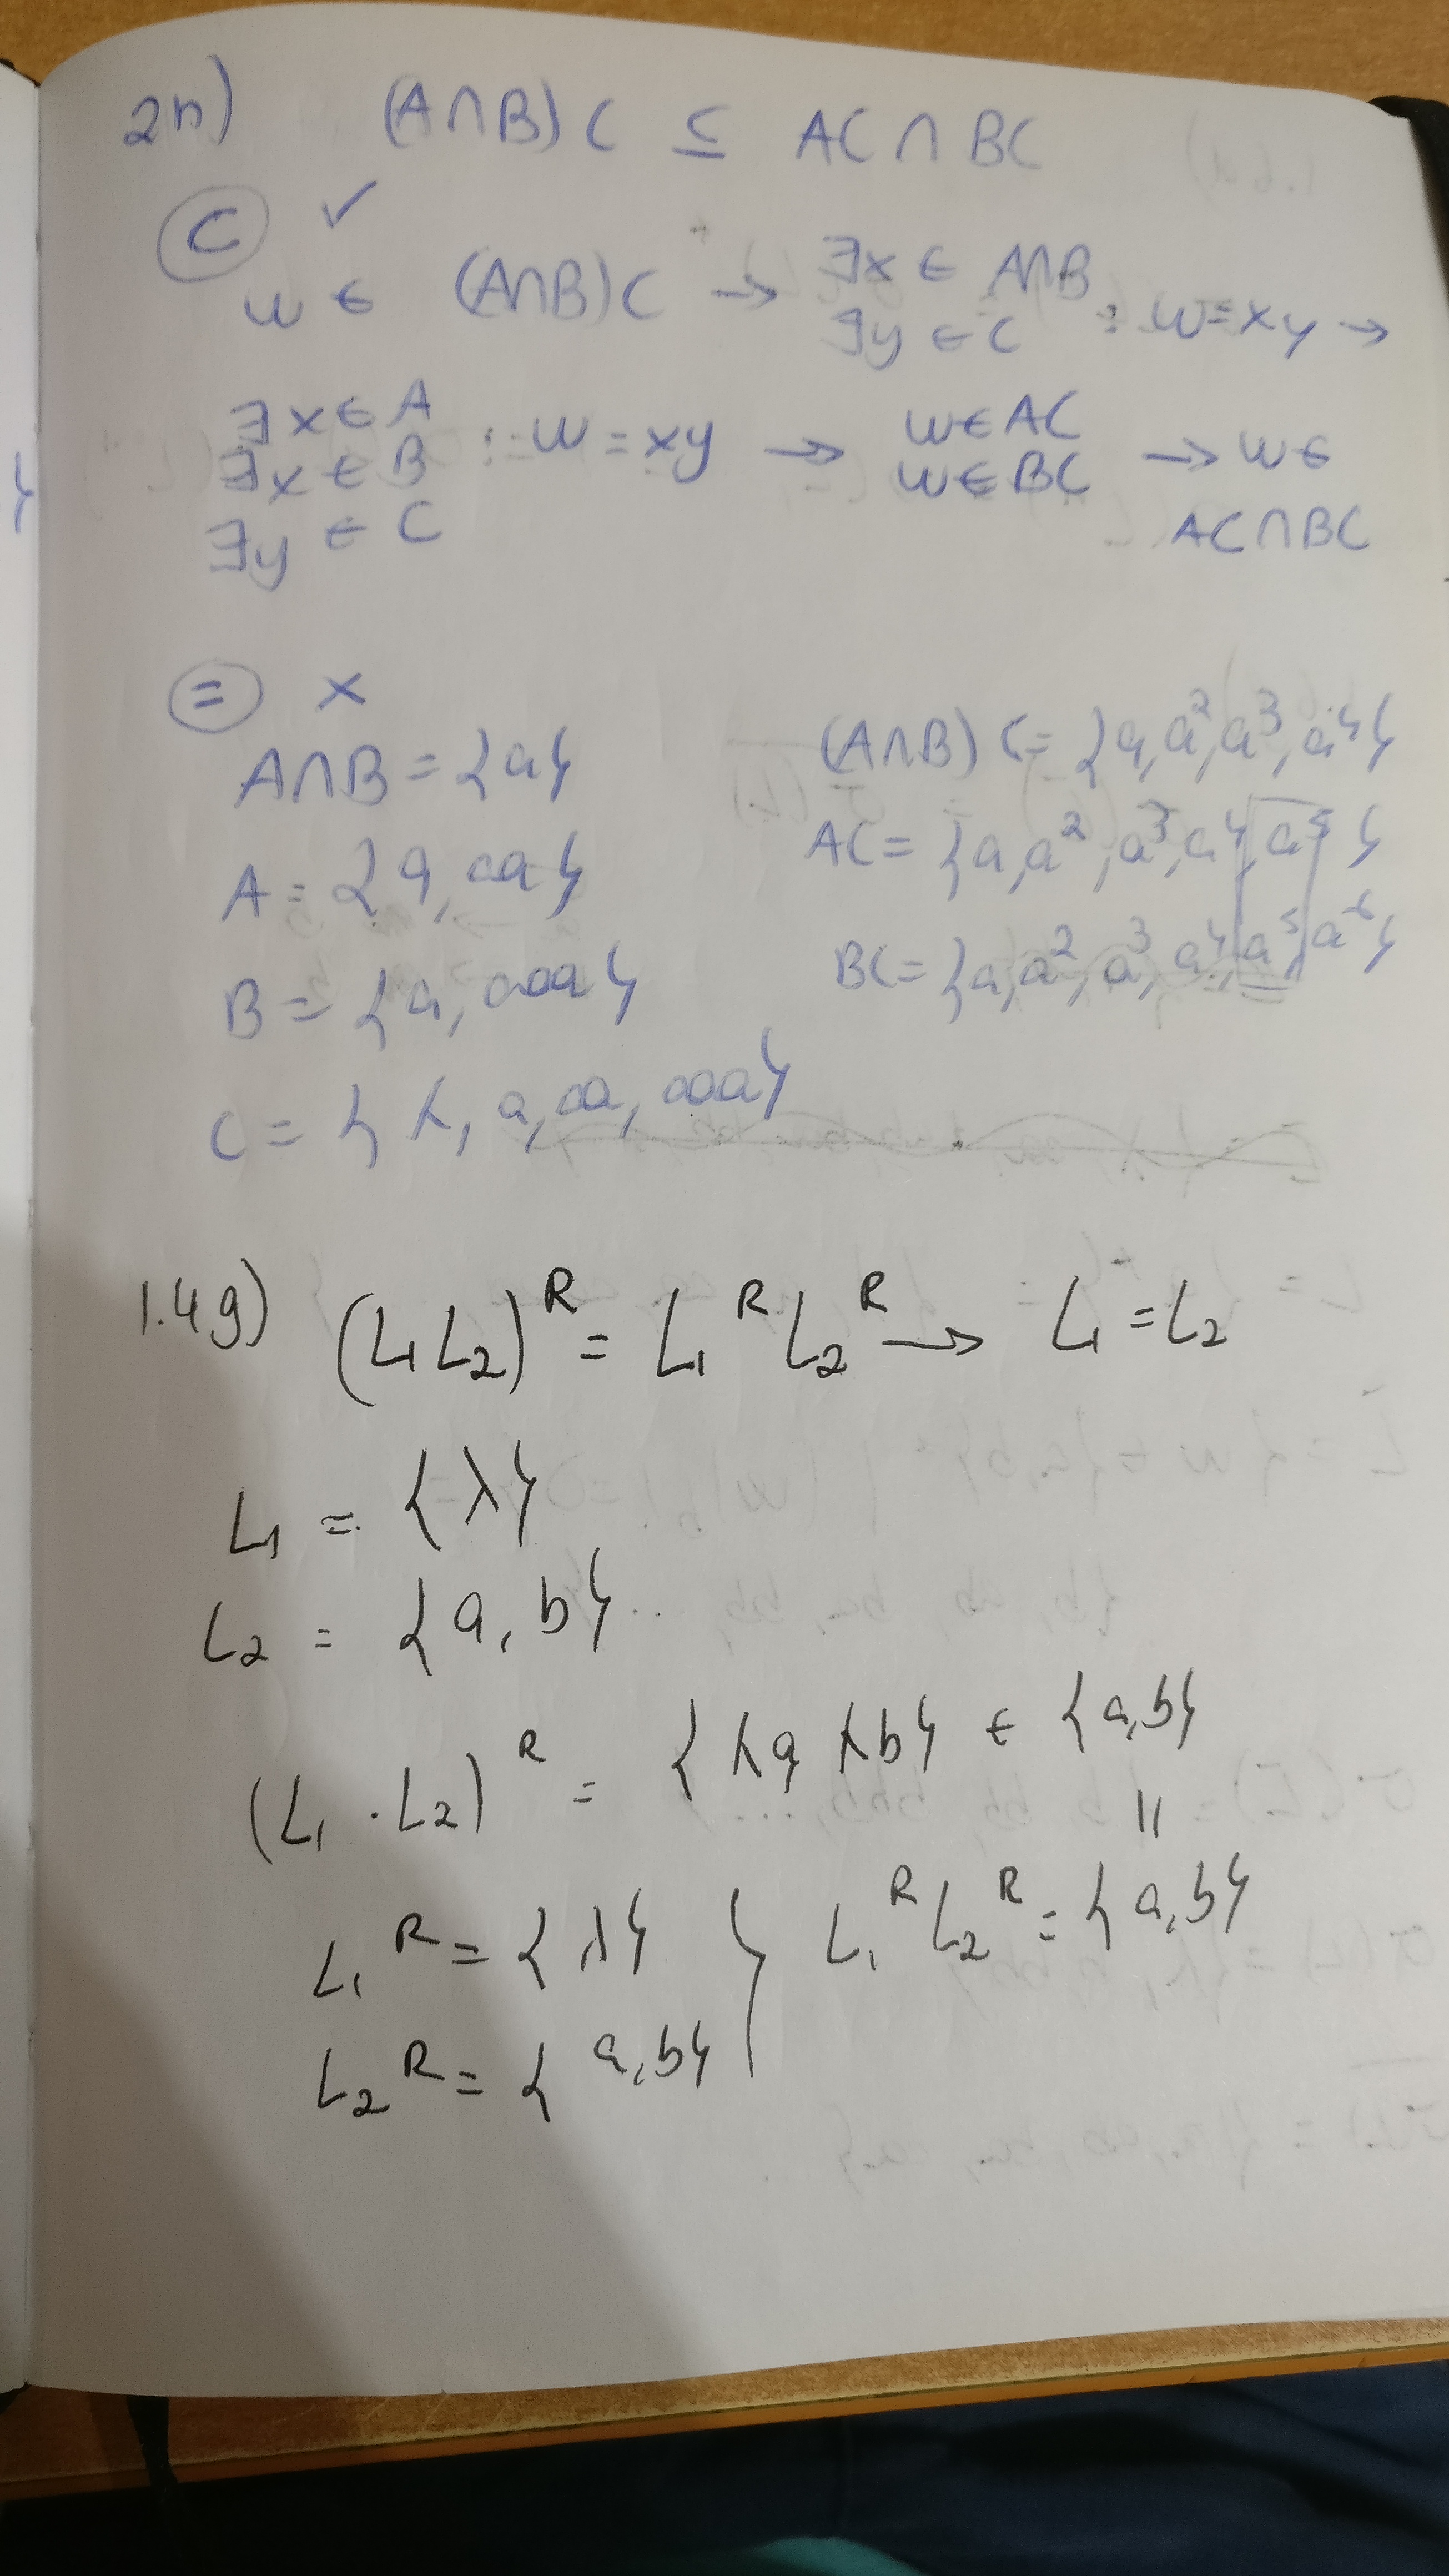 2n) (A∩B)C ⊆ AC∩BC
⊂ ✓
w ∈ (A∩B)C → ∃x ∈ A∩B ∃y ∈ C : w=xy →
∃x∈A ∃x∈B ∃y∈C : w=xy → w∈AC w∈BC → w∈ AC∩BC
= ×
A∩B = {a}
(A∩B)C = {a,a²,a³,a⁴}
A = {a, aa}
AC = {a,a²,a³,a⁴,a⁵}
B = {a, aaa}
BC = {a,a²,a³,a⁴,a⁵,a⁶}
C = {λ, a, aa, aaa}
1.4g) (L₁L₂)ᴿ = L₁ᴿL₂ᴿ → L₁ = L₂
L₁ = {λ}
L₂ = {a, b}
(L₁·L₂)ᴿ = {λa λb} ∈ {a,b}
=
L₁ᴿ = {λ} } L₁ᴿL₂ᴿ = {a,b}
L₂ᴿ = {a,b}